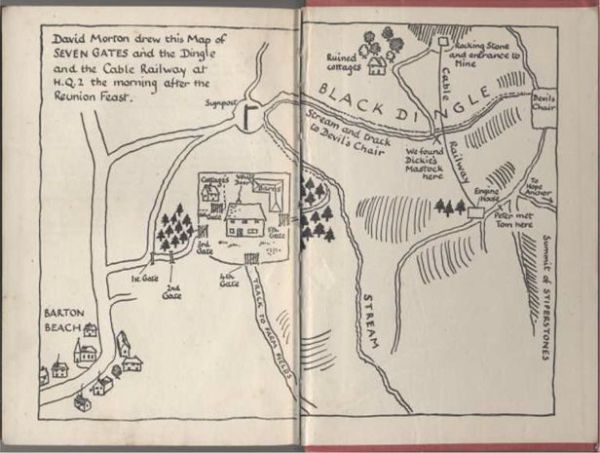 David Morton drew this Map of
SEVEN GATES and the Dingle
and the Cable Railway at
H.Q.2 the morning after the
Reunion Feast.
Ruined
cottages
Rocking Stone
and entrance to
Mine
Signpost
BLACK DINGLE
Cable
Railway
Devil's
Chair
Stream and track
to Devil's Chair
We found
Dickie's
Mastock
here
Cottages
White
Door
Barns
Engine
House
To
Hope
Anchor
Peter met
Tom here
Gate
5th
Gate
3rd
Gate
1st Gate
2nd
Gate
4th
Gate
TRACK TO FARM FIELDS
STREAM
Summit of STIPERSTONES
BARTON
BEACH